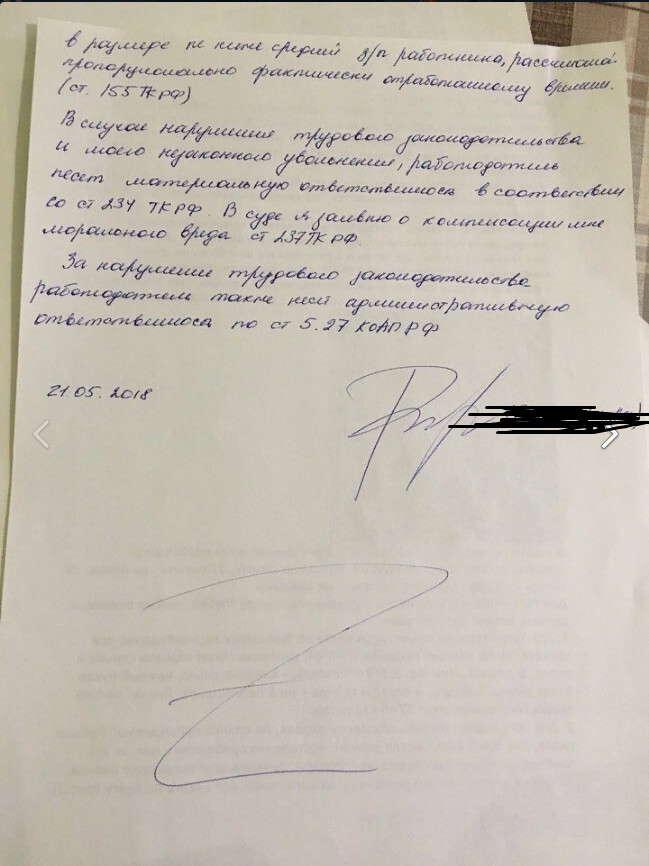 в размере не ниже средней з/п работника, рассчитана-
пропорционально фактически отработанному времени.
(ст. 155 ТК РФ)
В случае нарушения трудового законодательства
и моего незаконного увольнения, работодатель
несет материальную ответственность в соответствии
со ст 234 ТК РФ. В суде я заявлю о компенсации мне
морального вреда ст 237 ТК РФ.
За нарушение трудового законодательства
работодатель также несет административную
ответственность по ст 5.27 КоАП РФ
21.05.2018